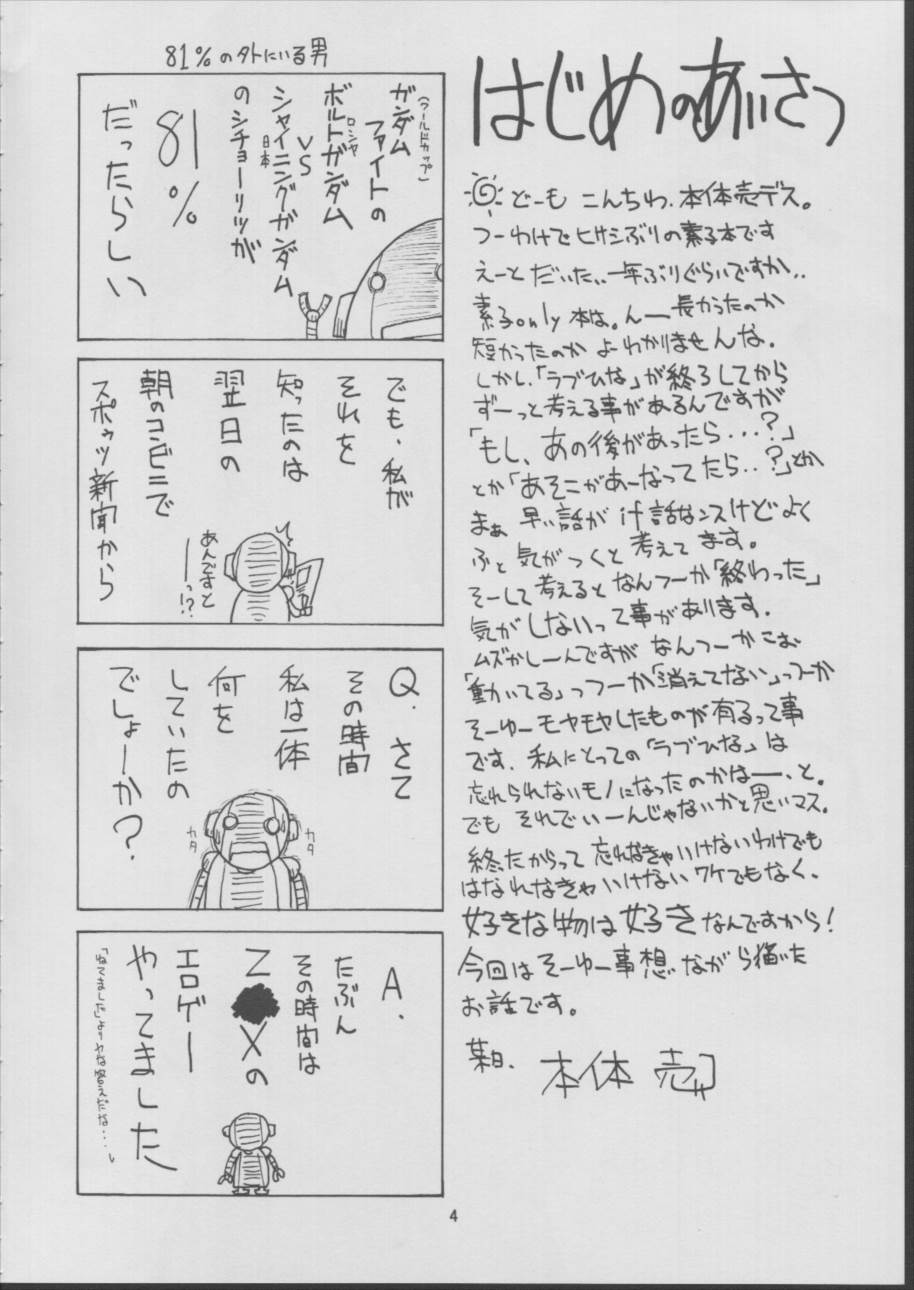 はじめのあいさつ
どーも こんちわ、本体売デス。
つーわけでヒサシぶりの素子本です
えーと だいたい、一年ぶりぐらいですか、、
素子only本は。んー長かったのか
短かったのか よーわかりませんな。
しかし、「ラブひな」が終了してから
ずーっと考える事があるんですが
「もし、あの後があったら・・・?」
とか「あそこがあーなってたら・・?」とか
まぁ 早い話が if話なンスけどよく
ふと気がつくと 考えてます。
そーして考えるとなんつーか「終わった」
気がしないって事があります。
ムズかしーんですが なんつーかこお
「動いてる」っつーか「消えてない」っつーか
そーゆーモヤモヤしたものが有るって事
です。私にとっての「ラブひな」は
忘れられないモノになったのかなー、と。
でも それでいーんじゃないかと思いマス。
終ったからって 忘れなきゃいけないわけでも
はなれなきゃいけないワケでもなく、
好きな物は好きなんですから!
今回はそーゆー事想いながら描いた
お話です。
某日、 本体 売
81%のソトにいる男
(ワールドカップ)
ガンダム
ファイトの
ロシヤ
ボルトガンダム
VS
シャイニングガンダム
日本
のシチョーリツが
81%
だったらしい
でも、私が
それを
知ったのは
翌日の
朝のコンビニで
スポゥツ新聞から
あんですと
ーっ!?
Q. さて
その時間
私は一体
何を
していたの
でしょーか?
カタ
カタ
A.
たぶん
その時間は
Z●Xの
エロゲー
やってました
「ねてました」よりヤな答えだな・・・し
4